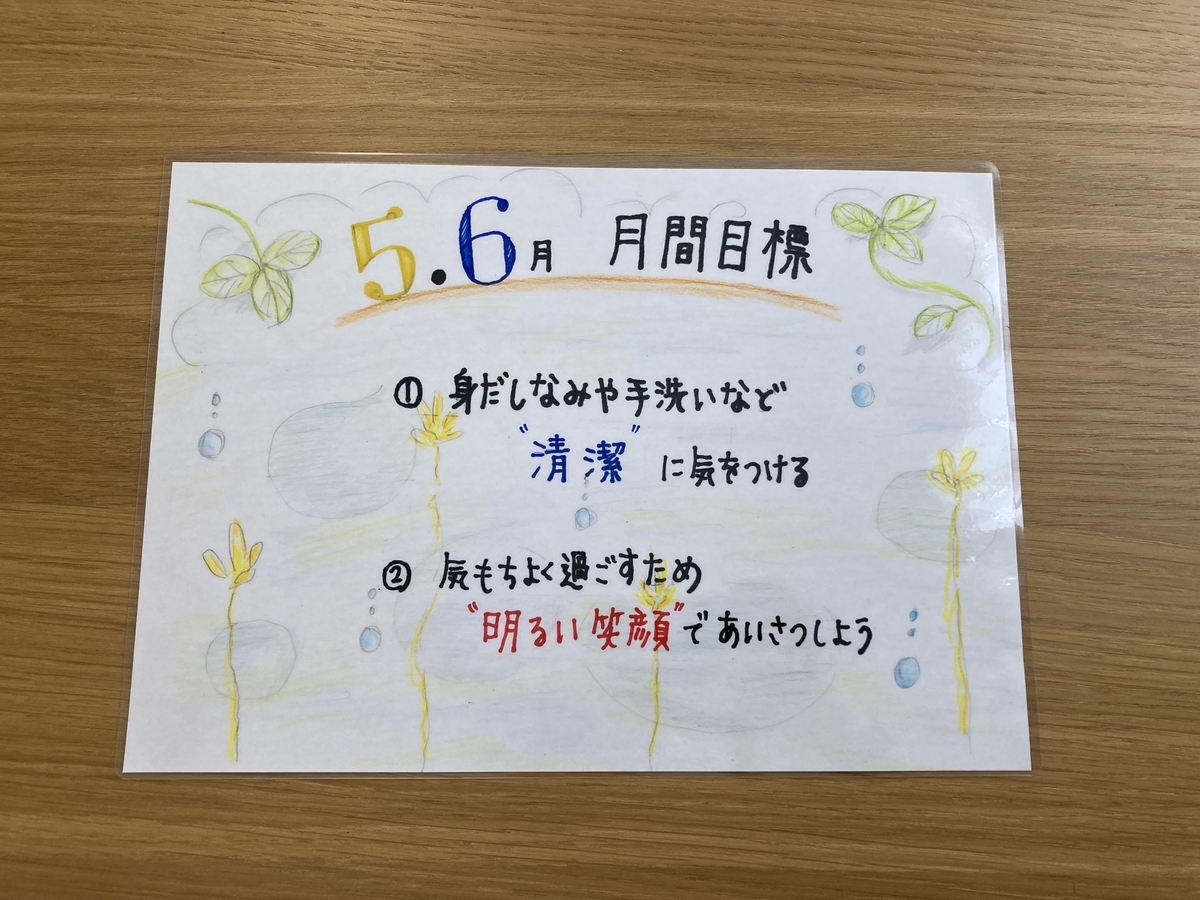 5.6月 月間目標
① 身だしなみや手洗いなど
"清潔"に気をつける
② 気もちよく過ごすため
"明るい笑顔"であいさつしよう